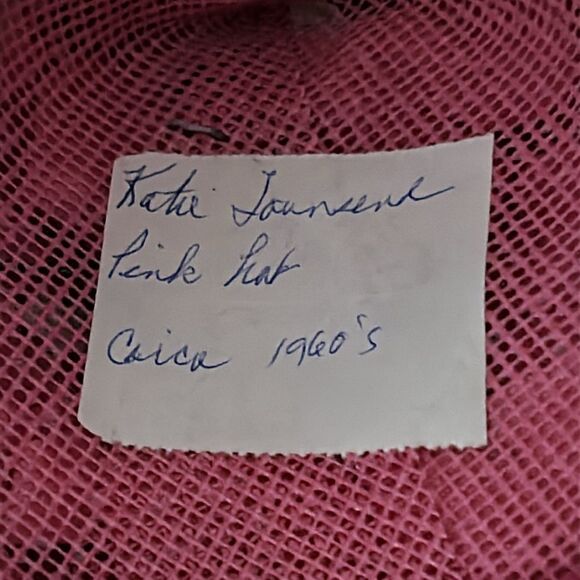 Katie Townsend
Pink hat
Caica 1960's